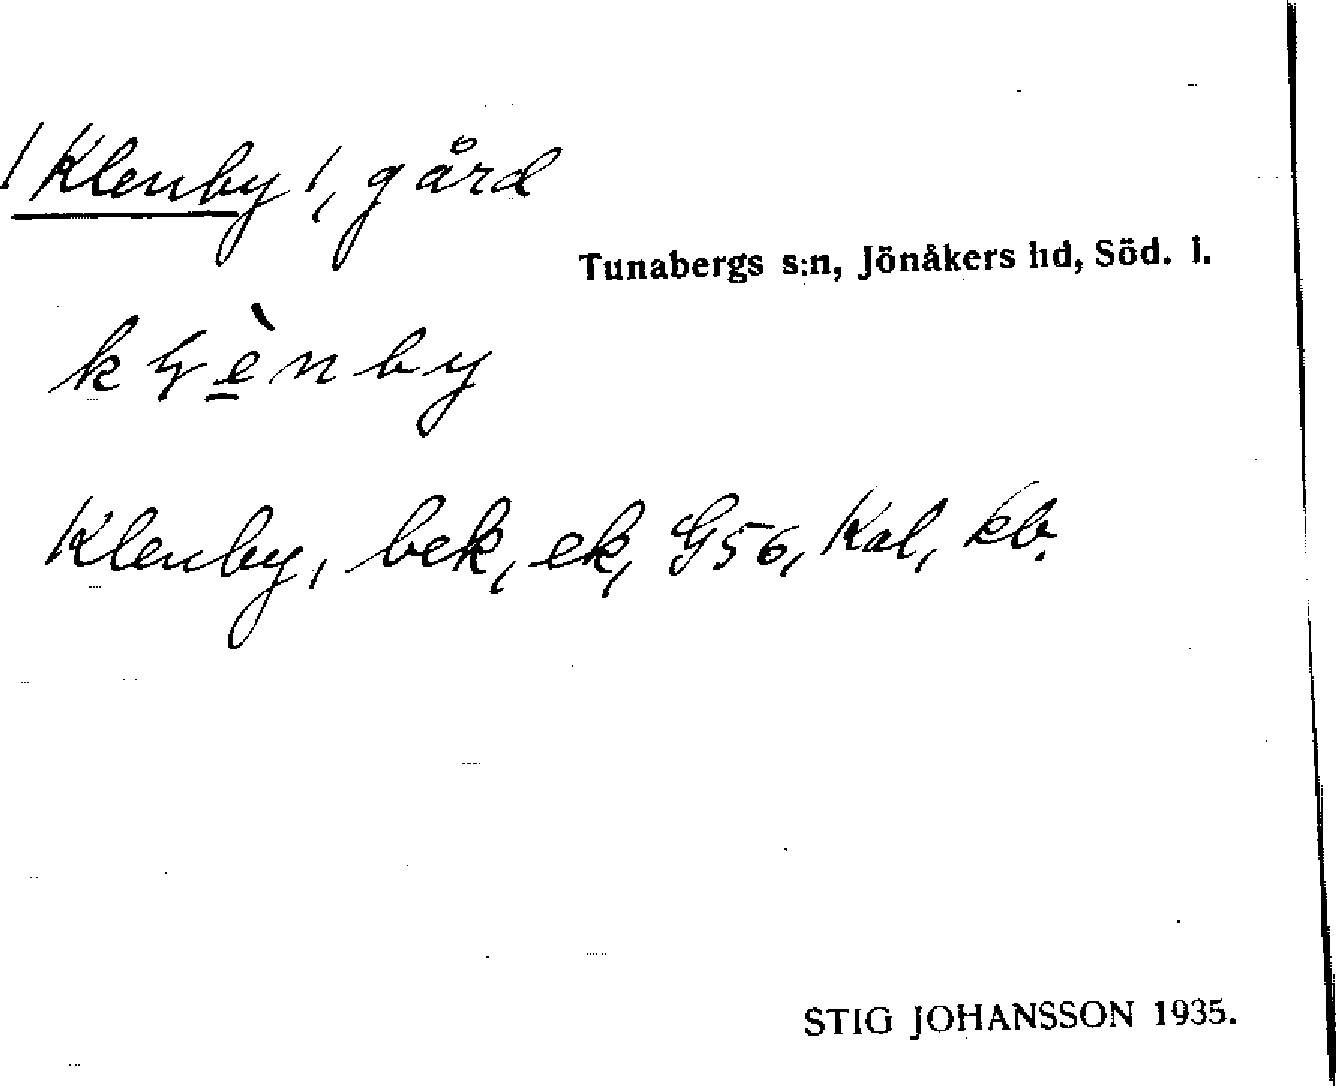 /Klenby/, gård
Tunabergs s:n, Jönåkers hd, Söd. l.
klènby
Klenby, bek, ek, G56, Kal, kb.
STIG JOHANSSON 1935.